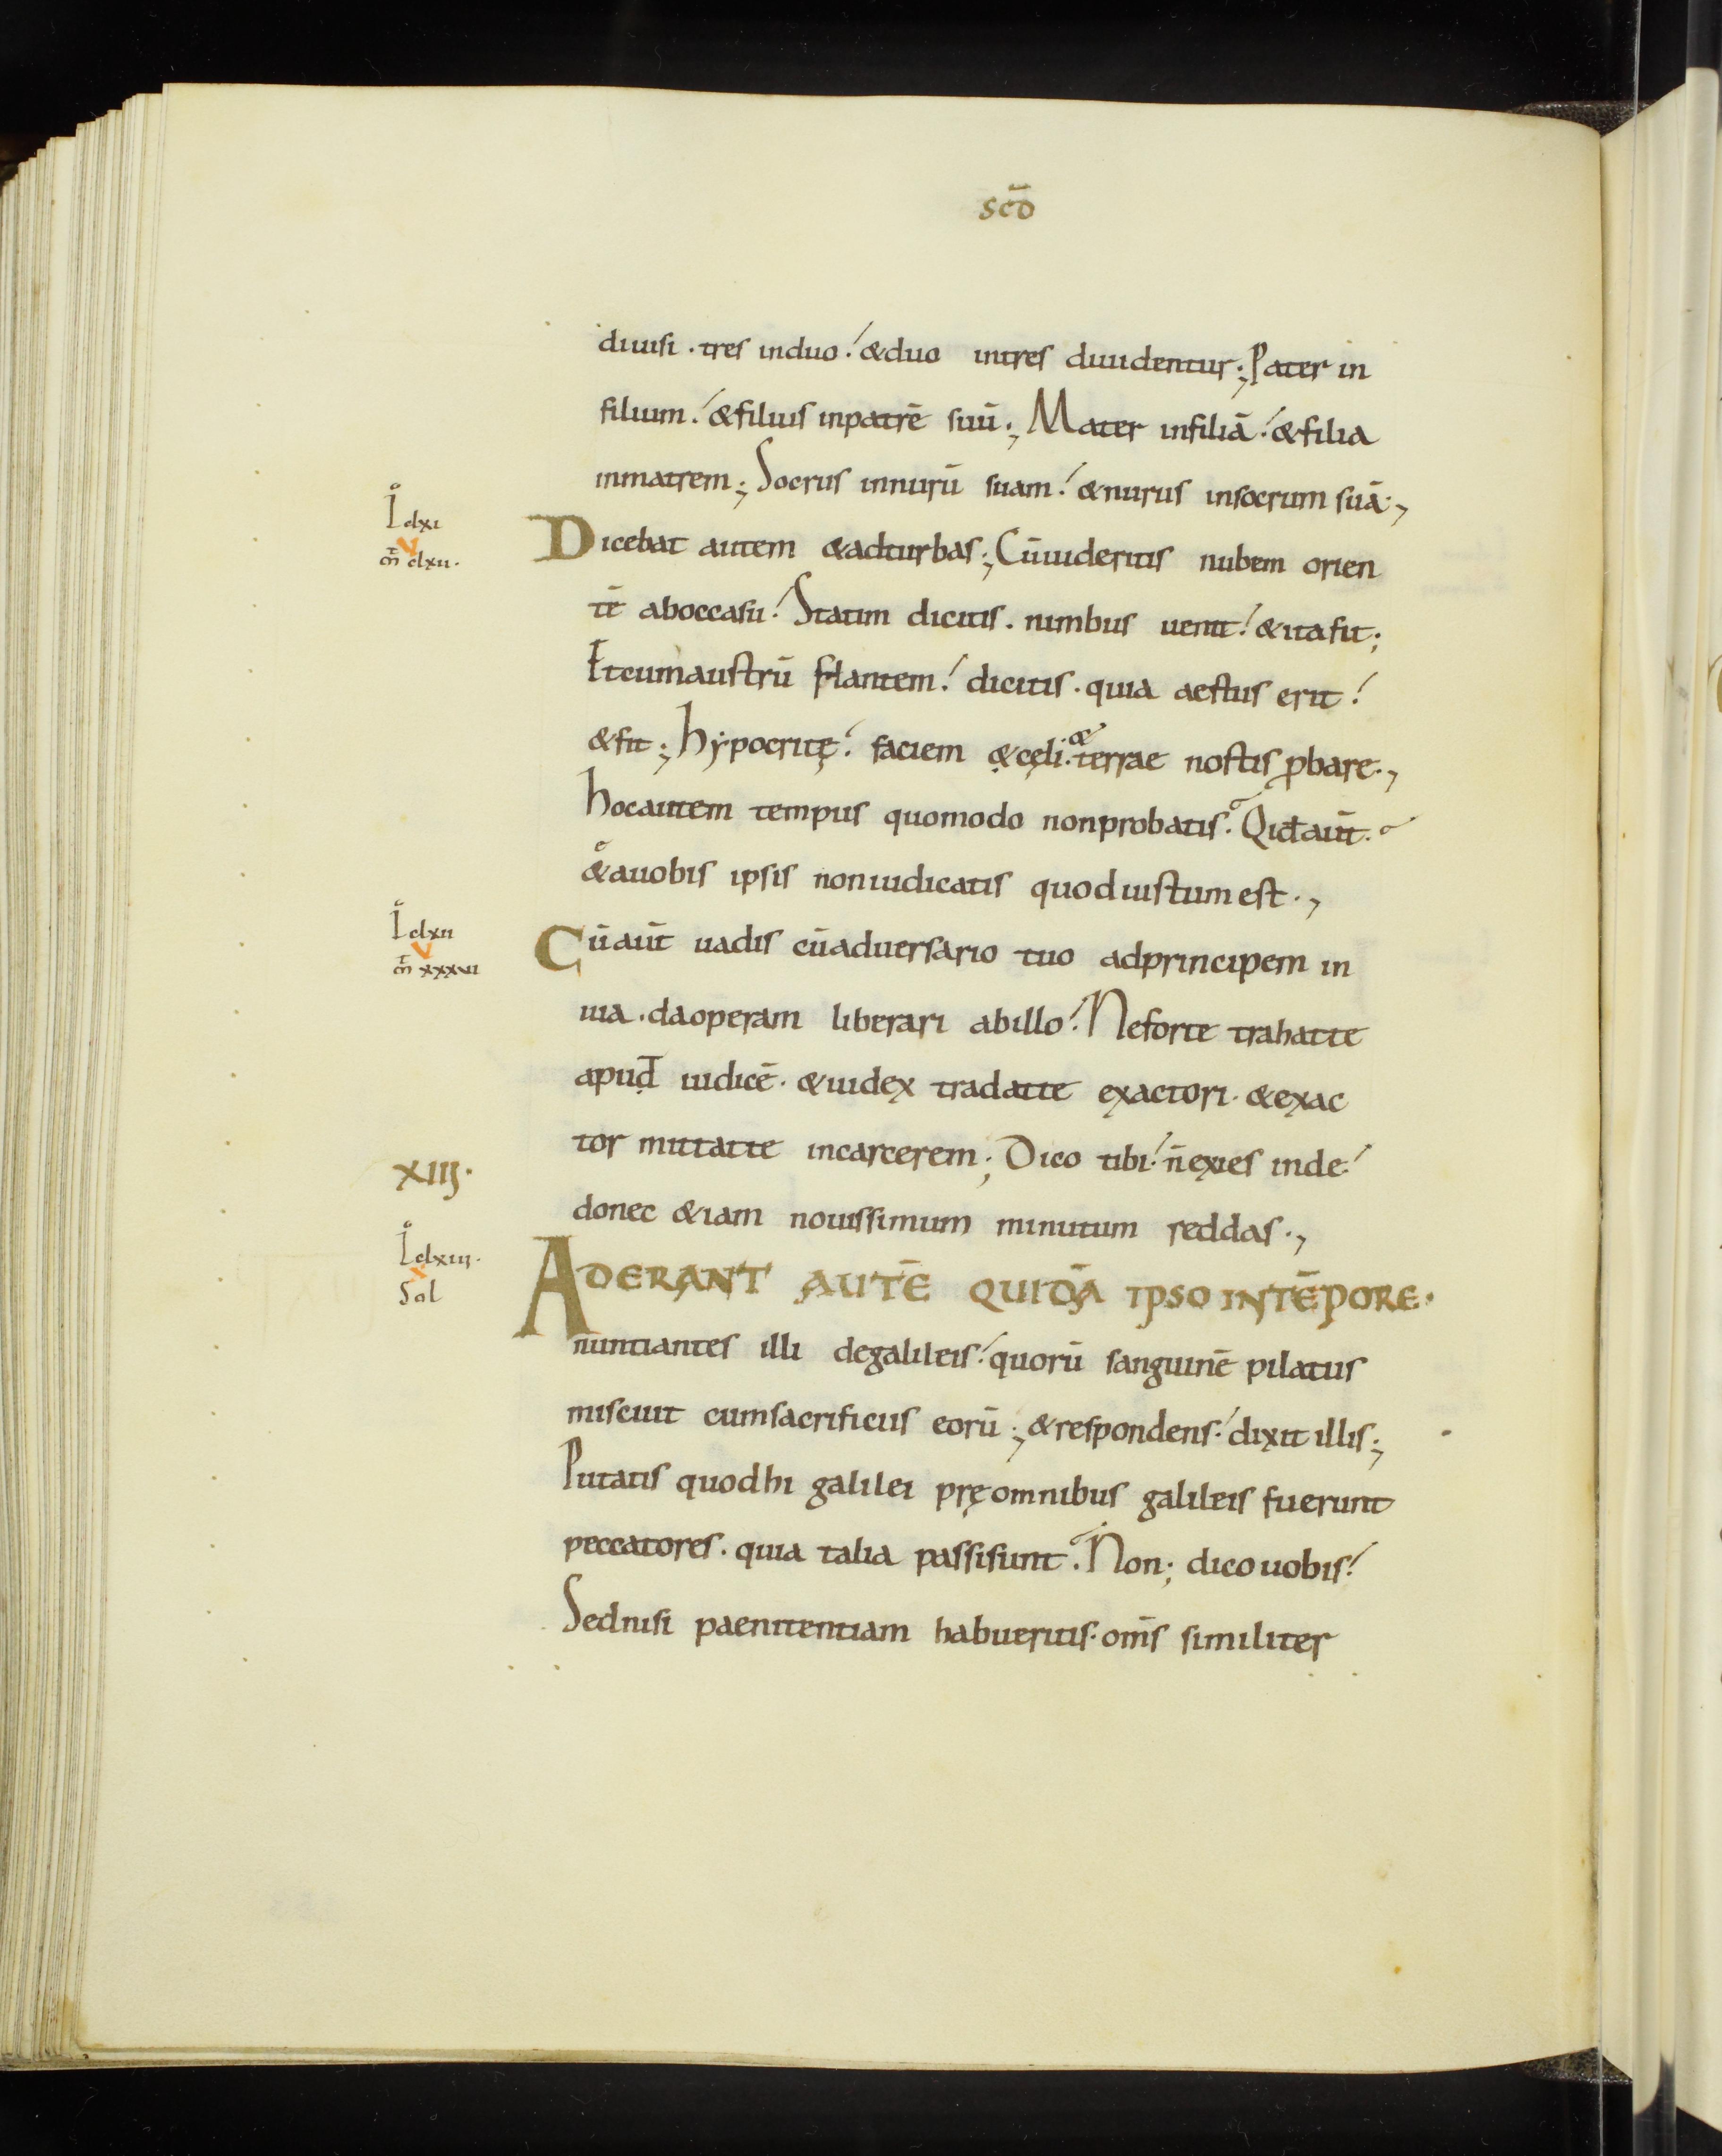 scd̄
diuisi · tres induo ! &duo intres diuidentur ; Pater in
filium ! &filius inpatrē suū ; Mater infiliā ! &filia
inmatrem ; Socrus innurū suam ! &nurus insocrum suā ;
L dxi
m̄ clxii ·
Dicebat autem &adturbas ; Cūuideritis nubem orien
tē aboccasu ! Statim dicitis · nimbus uenit ! &itafit ;
Etcumaustrū flantem ! dicitis · quia aestus erit !
&fit ; hẏpocritę ! faciem &cęli · & terrae nostis ꝓbare ·,
hocautem tempus quomodo nonprobatis · Qid aūt ·
&auobis ipsis noniudicatis quodiustumest ·,
L clxii
m̄ xxxvii
Cūaūt uadis cūaduersario tuo adprincipem in
uia · daoperam liberari abillo ! Neforte trahatte
apud iudicē · &iudex tradatte exactori · &exac
tor mittatte incarcerem ; Dico tibi ! n̄exies inde !
XIIJ ·
donec &iam nouissimum minutum reddas ·,
L clxiii ·
Sol
ADERANT AUTĒ QUIDĀ IPSO INTĒPORE ·
nuntiantes illi degalileis ! quorū sanguinē pilatus
miscuit cumsacrificiis eorū ; &respondens ! dixit illis ;
Putatis quodhi galilei pręomnibus galileis fuerunt
peccatores · quia talia passisunt · Non ; dicouobis !
Sednisi paenitentiam habueritis · om̄s similiter